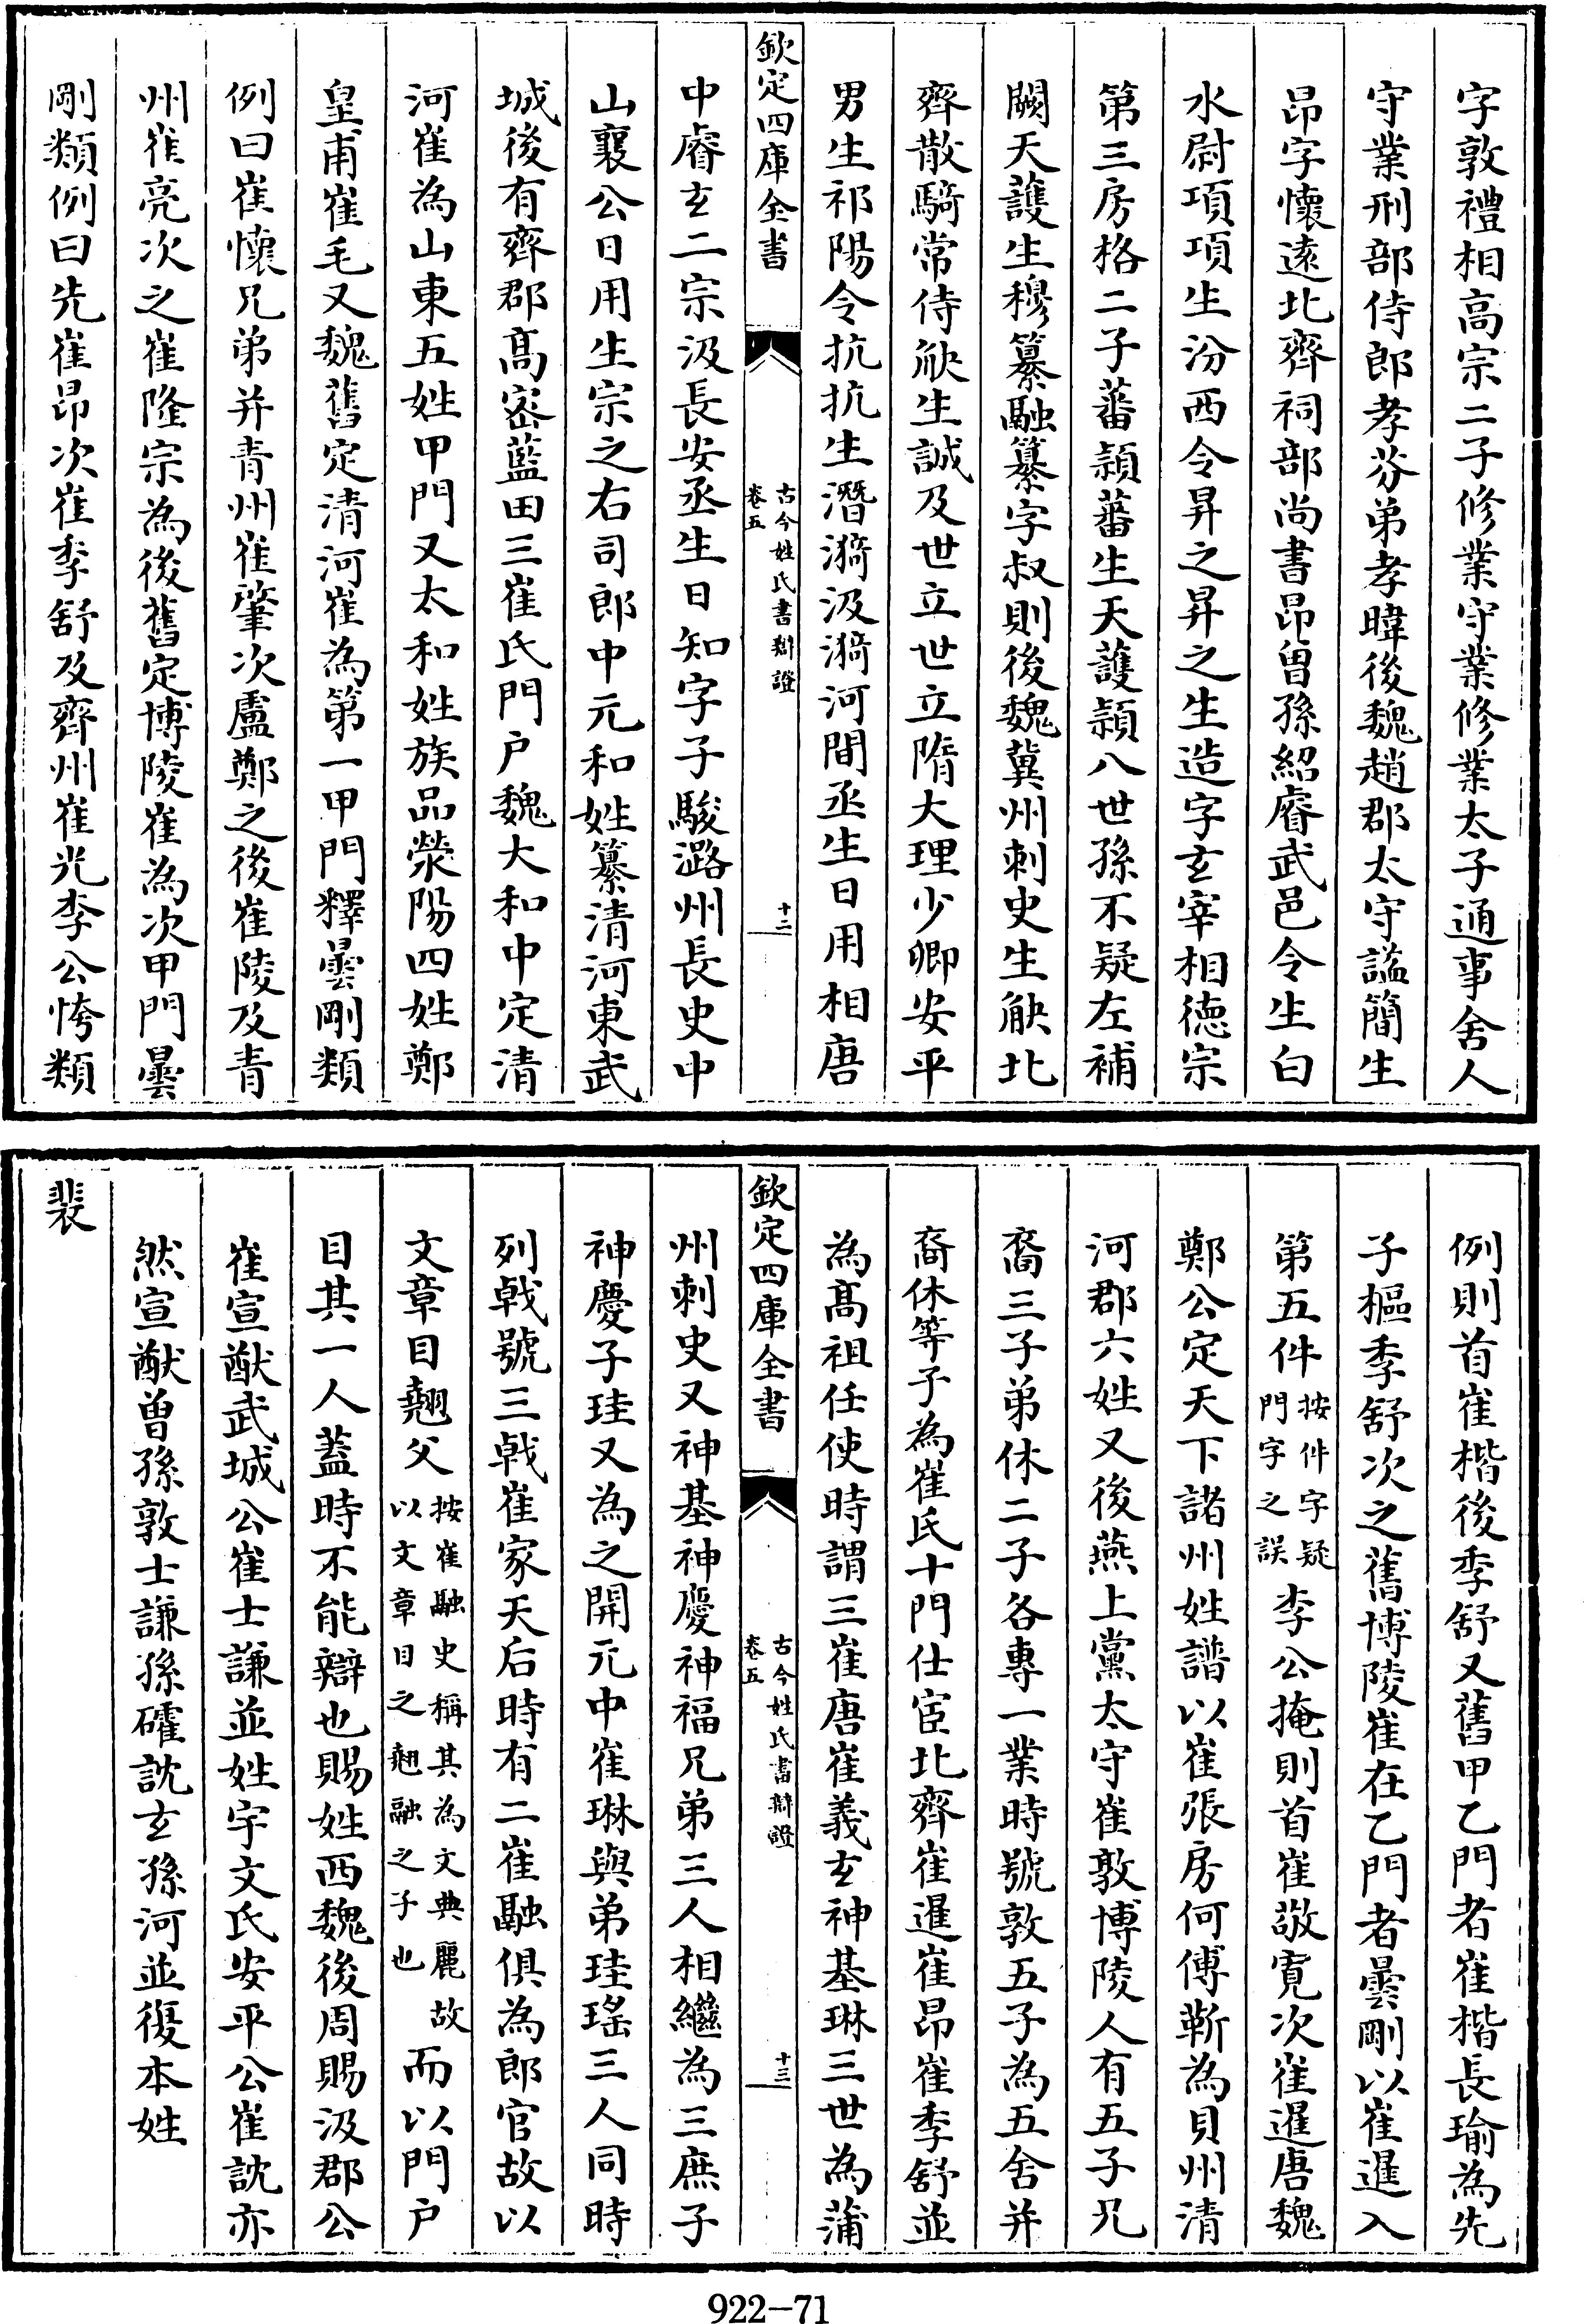 字敦禮相高宗二子修業守業修業太子通事舍人
守業刑部侍郎孝芬弟孝暐後魏趙郡太守謚簡生
昂字懷遠北齊祠部尚書昂曾孫紹睿武邑令生白
水尉項項生汾西令昇之昇之生造字玄宰相德宗
第三房格二子蕃頴蕃生天護頴八世孫不疑左補
闕天護生穆纂融纂字叔則後魏冀州刺史生觖北
齊散騎常侍觖生誠及世立世立隋大理少卿安平
男生祁陽令抗抗生潛漪汲漪河間丞生日用相唐
欽定四庫全書
古今姓氏書辯證
卷五
十二
中睿玄二宗汲長安丞生日知字子駿潞州長史中
山襄公日用生宗之右司郎中元和姓纂清河東武
城後有齊郡高密藍田三崔氏門户魏大和中定清
河崔為山東五姓甲門又太和姓族品滎陽四姓鄭
皇甫崔毛又魏舊定清河崔為第一甲門釋曇剛類
例曰崔懷兄弟并青州崔肇次盧鄭之後崔陵及青
州崔亮次之崔隆宗為後舊定博陵崔為次甲門曇
剛類例曰先崔昂次崔季舒及齊州崔光李公恢類
例則首崔楷後季舒又舊甲乙門者崔楷長瑜為先
子樞季舒次之舊博陵崔在乙門者曇剛以崔暹入
第五件按件字疑門字之誤李公掩則首崔敬寬次崔暹唐魏
鄭公定天下諸州姓譜以崔張房何傅靳為貝州清
河郡六姓又後燕上黨太守崔敦博陵人有五子凡
裔三子弟休二子各專一業時號敦五子為五舍并
裔休等子為崔氏十門仕宦北齊崔暹崔昂崔季舒並
為髙祖任使時謂三崔唐崔義玄神基琳三世為蒲
欽定四庫全書
古今姓氏書辯證
卷五
十三
州刺史又神基神慶神福兄弟三人相繼為三庶子
神慶子珪又為之開元中崔琳與弟珪瑤三人同時
列戟號三戟崔家天后時有二崔融俱為郎官故以
文章目翹父按崔融史稱其為文典麗故以文章目之翹融之子也而以門户
目其一人蓋時不能辯也賜姓西魏後周賜汲郡公
崔宣猷武城公崔士謙並姓宇文氏安平公崔訦亦
然宣猷曽孫敦士謙孫礭訦玄孫河並復本姓
裴
922-71